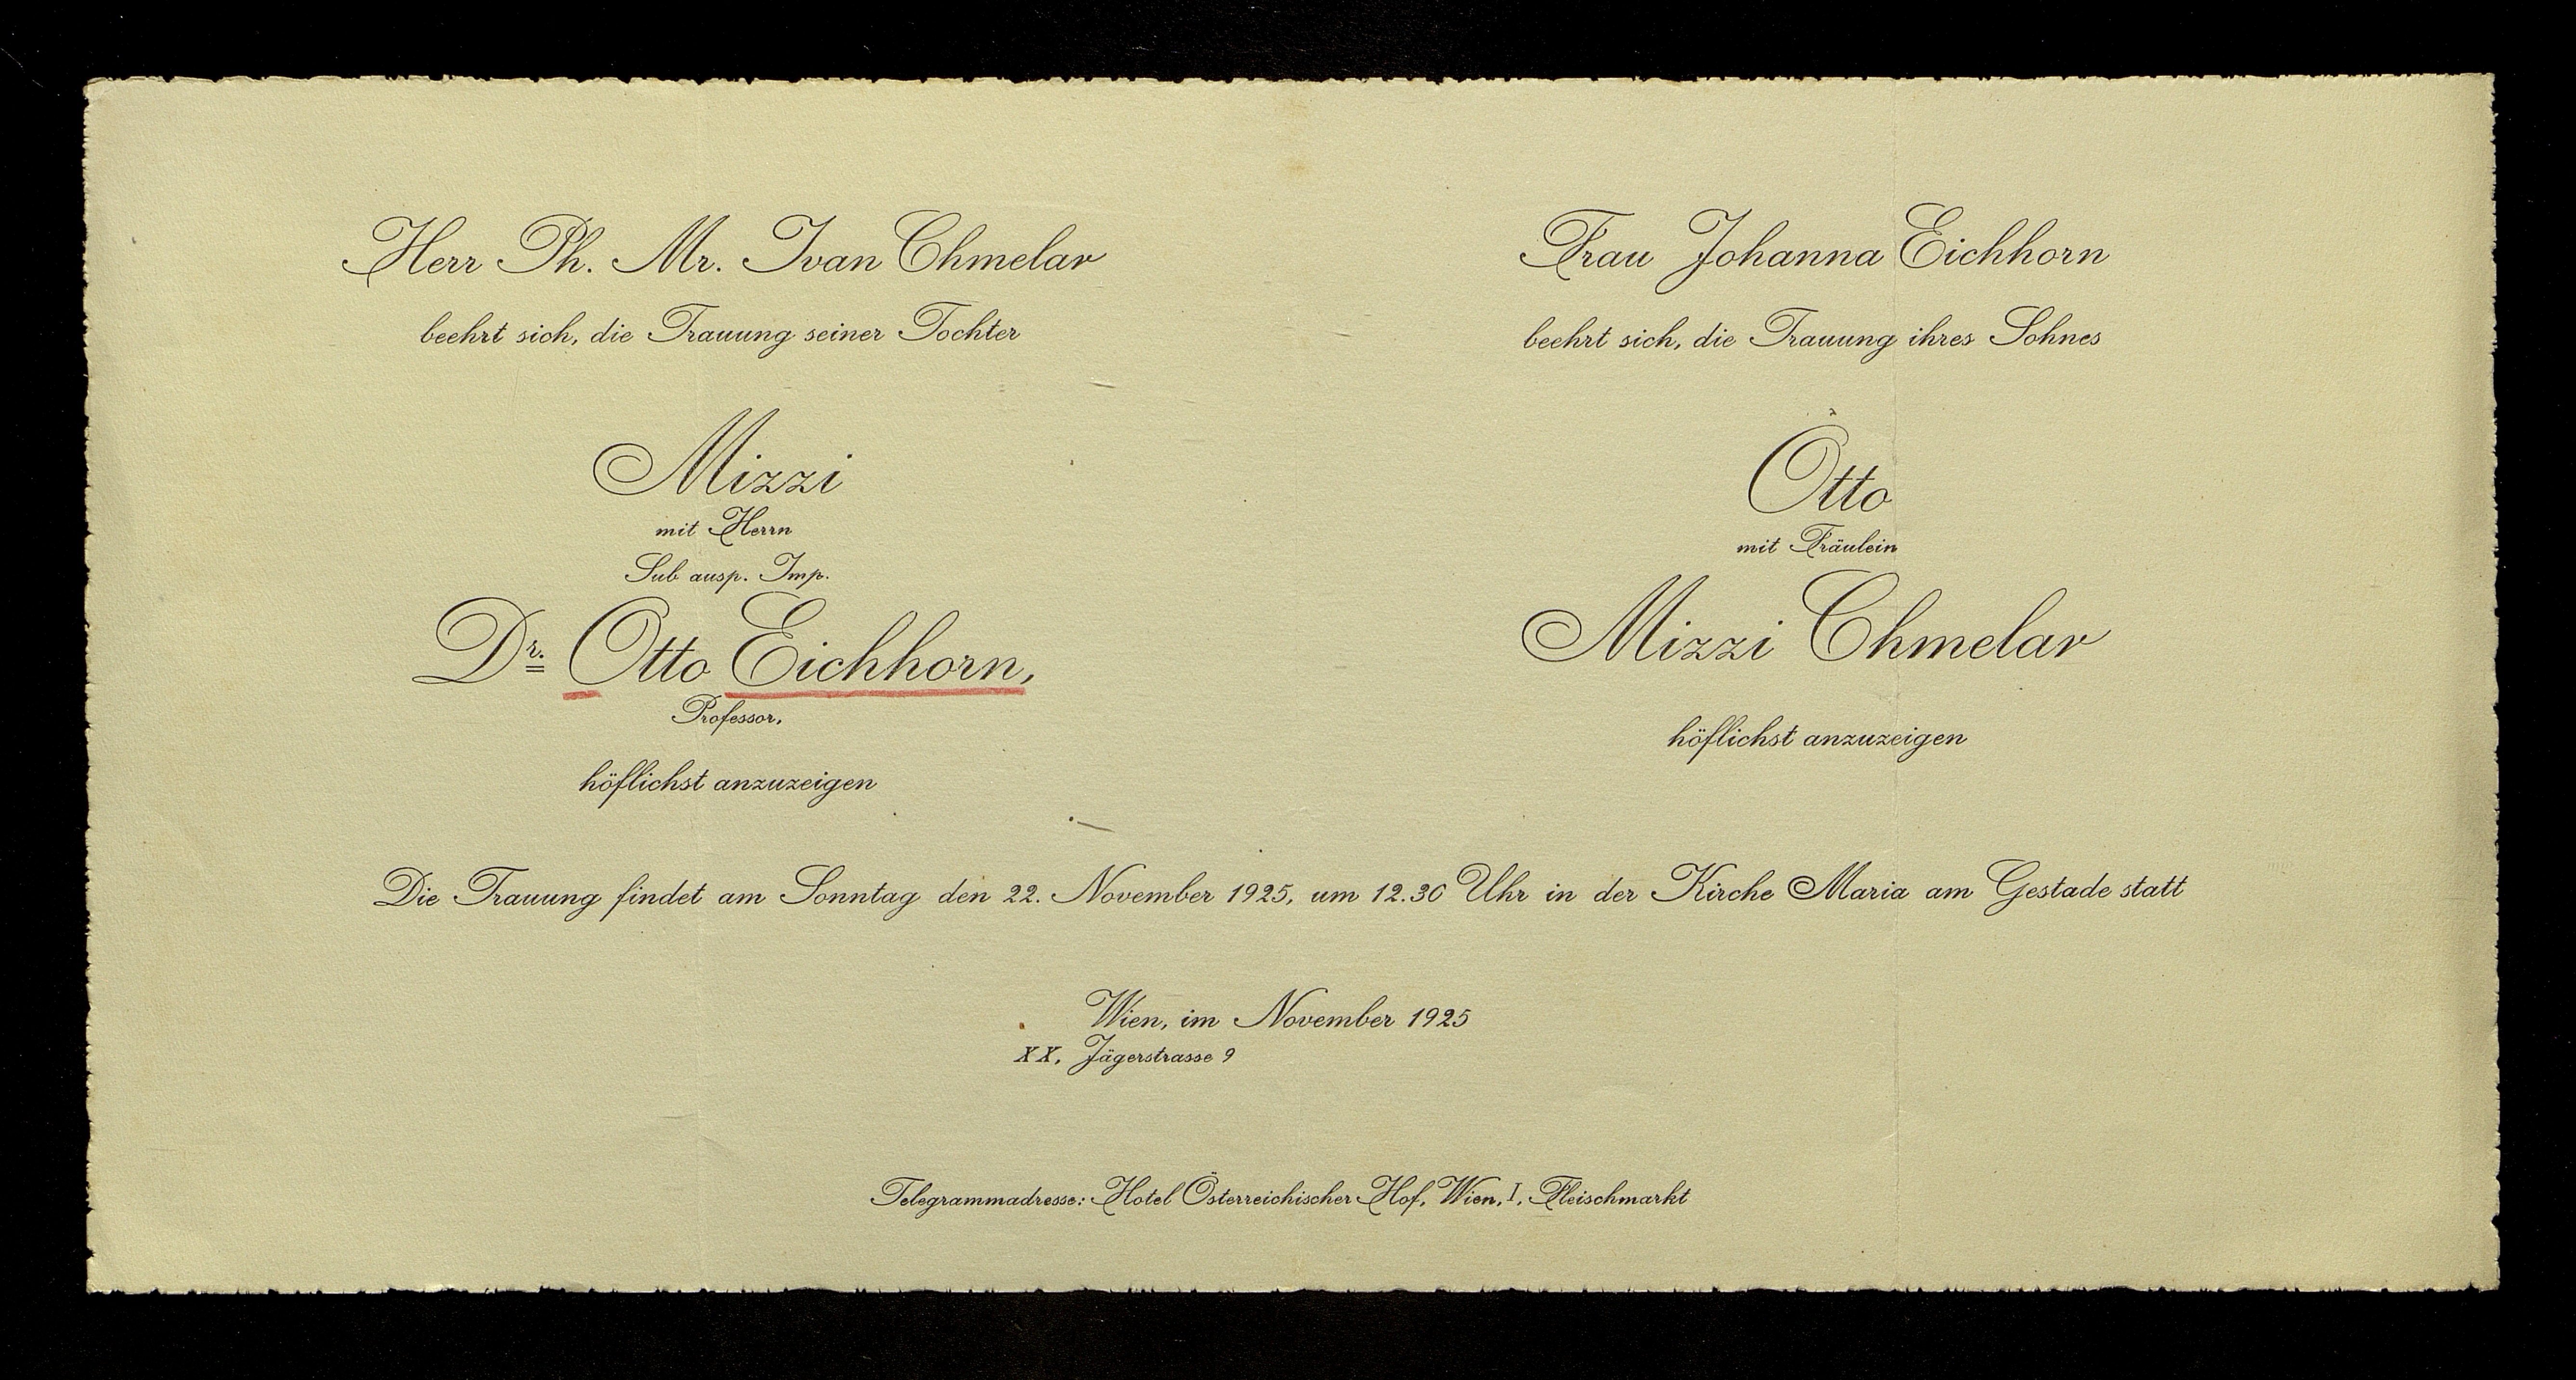 Herr Ph. Mr. Ivan Chmelar
beehrt sich, die Trauung seiner Tochter
Mizzi
mit Herrn
Sub ausp. Imp.
Dr. Otto Eichhorn,
Professor,
höflichst anzuzeigen
Frau Johanna Eichhorn
beehrt sich, die Trauung ihres Sohnes
Otto
mit Fräulein
Mizzi Chmelar
höflichst anzuzeigen
Die Trauung findet am Sonntag den 22. November 1925, um 12.30 Uhr in der Kirche Maria am Gestade statt
Wien, im November 1925
XX, Jägerstrasse 9
Telegrammadresse: Hotel Österreichischer Hof, Wien, I, Fleischmarkt